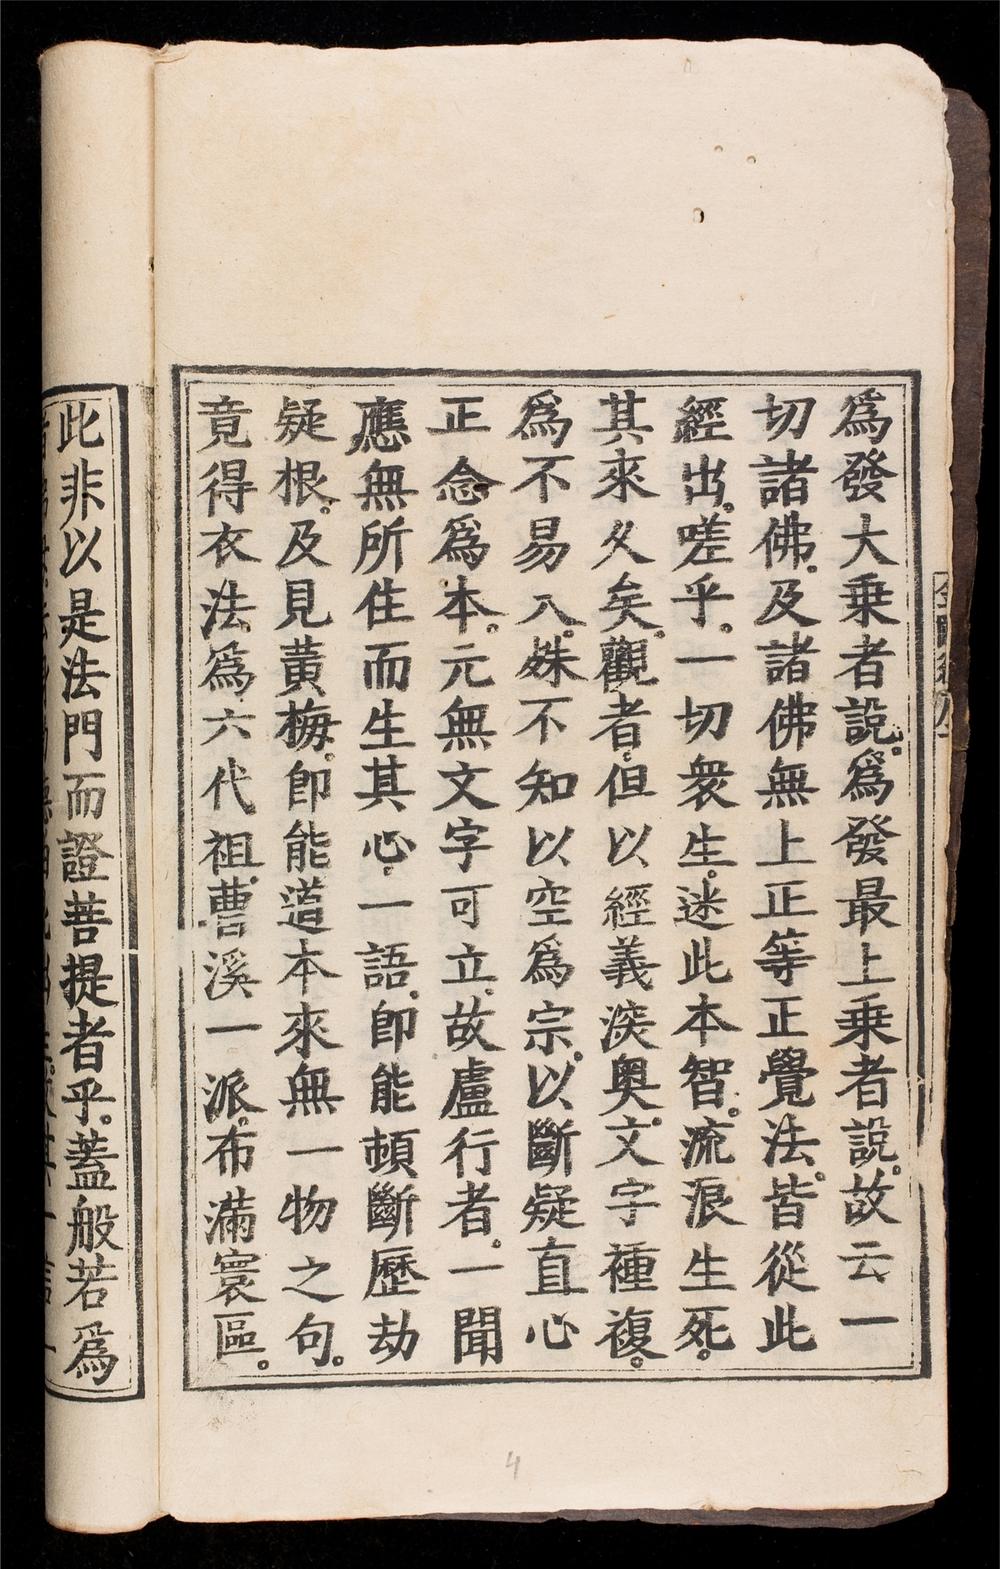 爲發大乗者說。爲發最上乗者說。故云一
切諸佛。及諸佛無上正等正覺法。皆從此
經出。嗟乎。一切衆生。迷此本智。流浪生死。
其來久矣。觀者。但以經義深奥。文字種複。
爲不易入。姝不知以空爲宗。以斷疑直心
正念爲本。元無文字可立。故盧行者。一聞
應無所住而生其心。一語。卽能頓斷歷劫
疑根。及見黄梅。卽能道本來無一物之句。
竟得衣法。爲六代祖。曹溪一派。布滿寰區。
此非以是法門而證菩提者乎。蓋般若爲
4